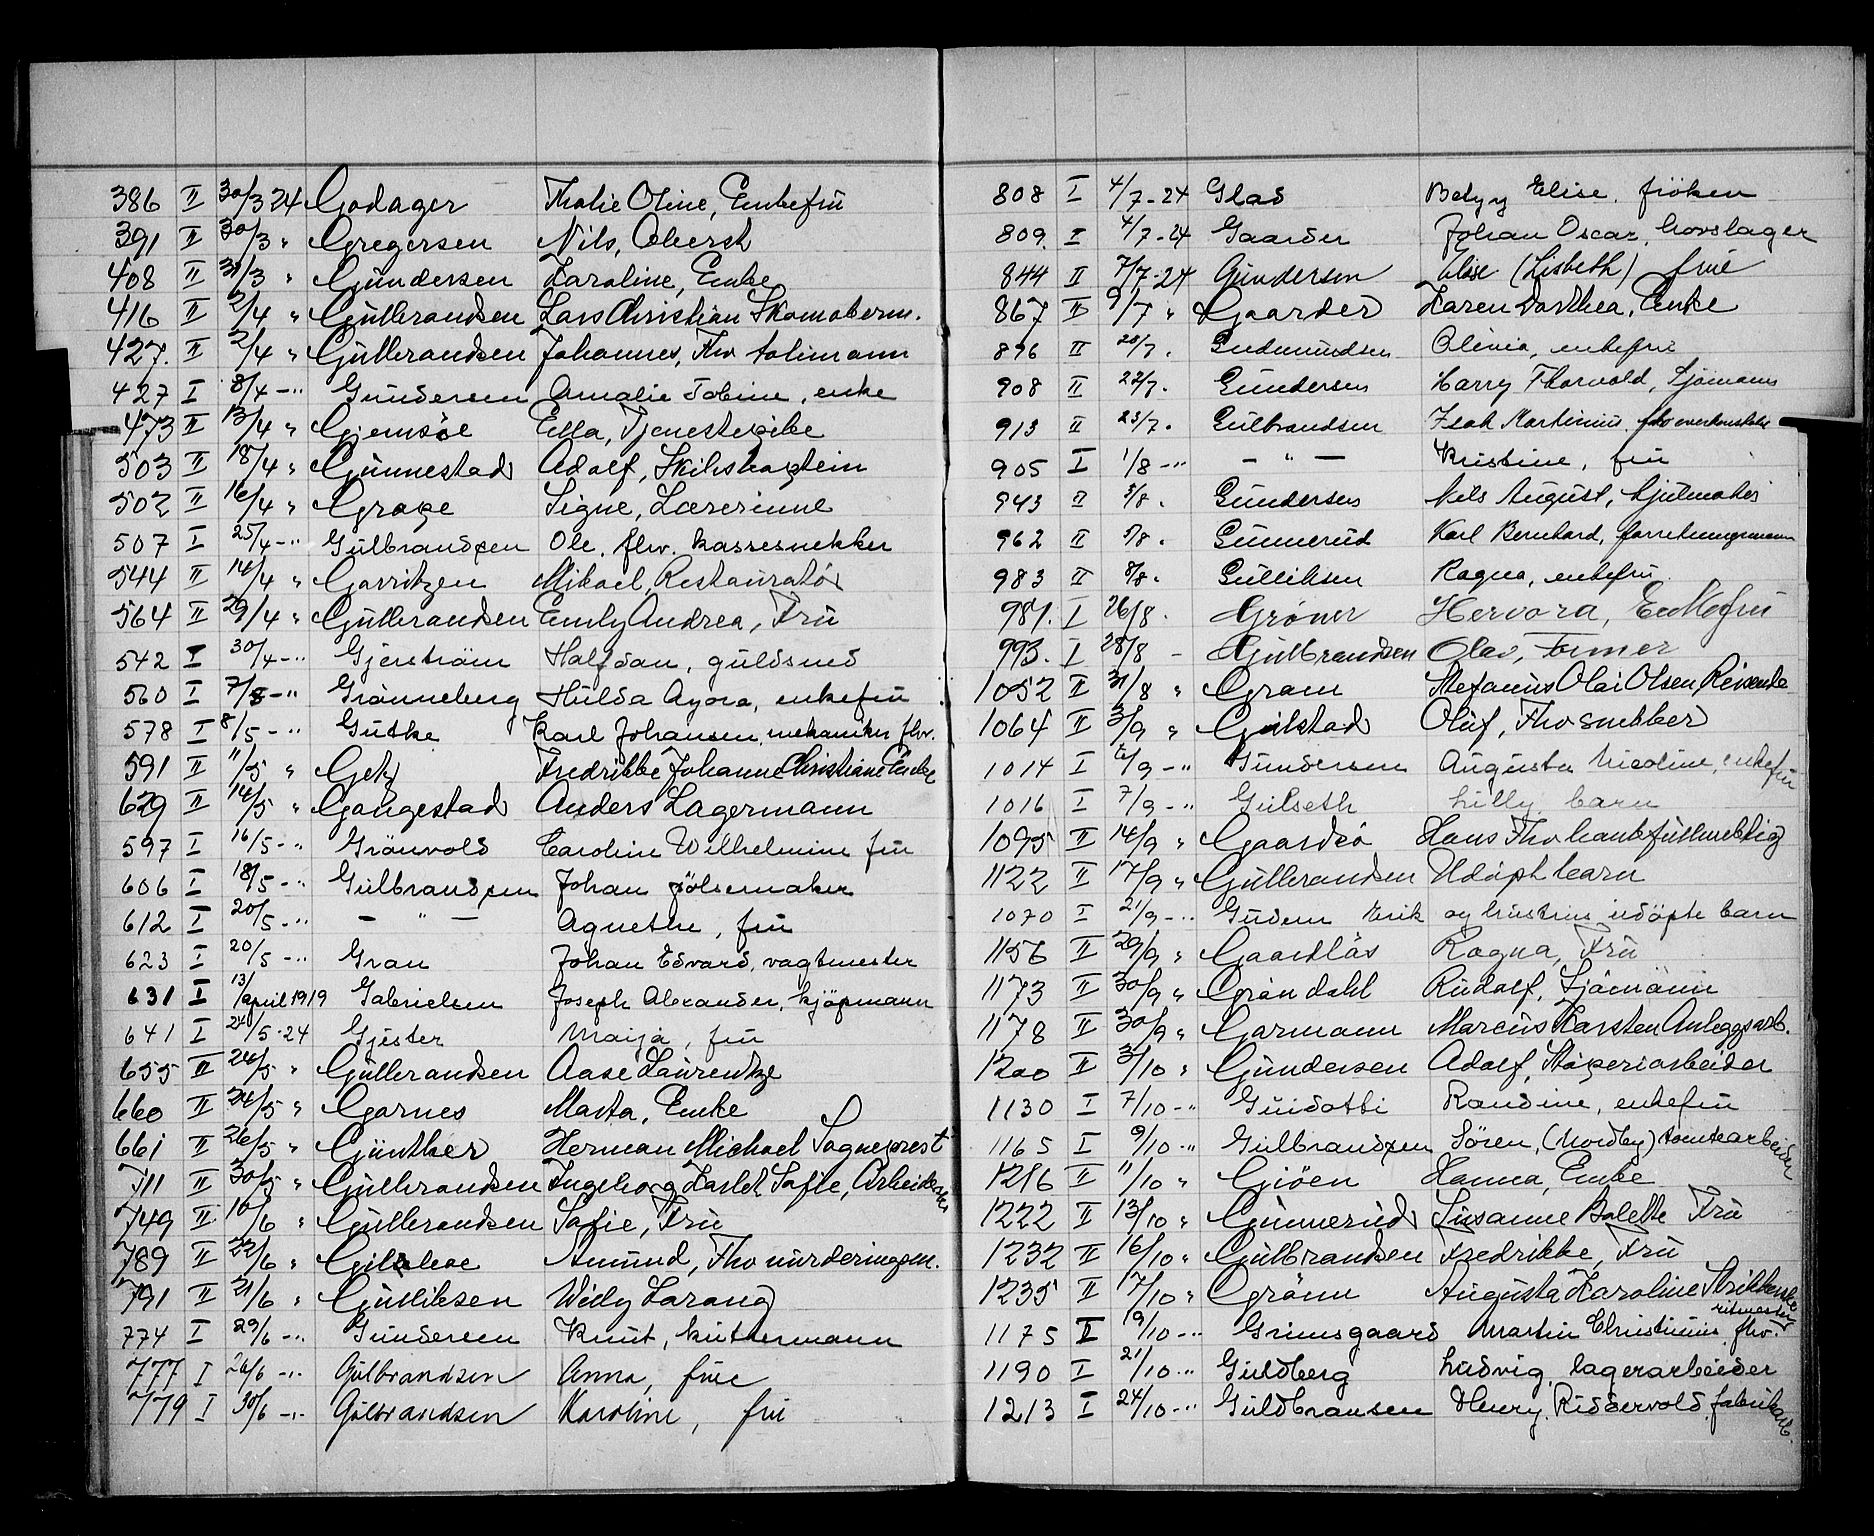 386 II 30/3 24 Godager Thalie Oline, Enkefrü
391 II 30/3 " Gregersen Nils, Oberst
408 II 31/3 " Gündersen Karoline, Enke
416 II 2/4 " Gülbrandsen Lars Christian Skomakerm.
427. II 2/4 " Gülbrandsen Johannes, Fhv tolimann
427 I 8/4 -"- Gündersen Amalie Tobine, enke
473 II 13/4 " Gjemsöe Ella, Tjenestepike
503 II 18/4 " Günnestad Adolf, Skibskaptein
502 II 16/4 " Grape Signe, Lærerinne
507 I 25/4 -"- Gülbrandsen Ole, fhv. kassesnekker
544 II 14/4 " Garritzen Mikael, Restauratör
564 II 29/4 " Gülbrandsen Emly Andrea, Frü
542 I 30/4 -"- Gjerström Halfdan, güldsmed
560 I 7/5 -"- Grönneberg Hülda Agora, enkefrü
578 I 8/5 -"- Gütke Karl Johansen, mekaniker fhv.
591 II 11/5 " Getz Fredrikke Johanne Christiane Enke
629 II 14/5 " Gaugestad Anders Lagermann
597 I 16/5 -"- Grönvold Caroline Wilhelmine frü
606 I 18/5 -"- Gülbrandsen Johan pölsemaker
612 I 20/5 -"- — " — Agnethe, frü
623 I 20/5 -"- Gran Johan Edvard, vagtmester
631 I 13/april 1919 Gabrielsen Joseph Alexander, kjöpmann
641 I 24/5-24 Gjester Maija, frü
655 II 24/5 " Gülbrandsen Aase Laürentze
660 II 24/5 " Garnes Marta, Enke
661 II 26/5 " Günther Herman Michael Sogneprest
711 II 30/5 " Gülbrandsen Ingeborg Sofie, Arbeiderske
749 II 16/6 " Gülbrandsen Sofie, Frü
789 II 22/6 " Amünd, Fhv vürderingsm.
791 II 21/6 " Gülliksen Willy Larang
774 I 29/6 -"- Gündersen Knut,
777 I 26/6 -"- Gülbrandsen Anna, frue
779 I 30/6 -"- Gülbrandsen Karoline, frü
808 I 4/7-24 Glad Betzy Elise, fröken
809 I 4/7-24 Gaarder Johan Oscar, hovslager
844 II 7/7-24 Gündersen Elise (Lisbeth) frue
867 II 9/7 " Gaarder Karen Dorthea, Enke
896 II 20/7. Gudmündsen Olivia, enkefrü
908 II 22/7. Gündersen Harry Thorvald, Sjömann
913 II 23/7. Gülbrandsen Isak Martinius, fhv overkonstabel
905 I 1/8 -"- — " — Kristine, frü
943 II 3/8. Gündersen Nils August, hjülmaker
962 II 5/8. Günnerüd Karl Bernhard, forretningsmann
983 II 8/8. Gülliksen Ragna, enkefrü
987. I 26/8. Gröner Hervora, Enkefrü
993. I 28/8 - Gülbrandsen Olav, Former
1052 II 31/8 " Gram Stefanus Olai Olsen, Reisende
1064 II 3/9 " Gülstad Olüf, Fhv snekker
1014 I 6/9 -"- Gündersen Augusta Nicoline, enkefrü
1016 I 7/9 -"- Gülseth Lilly barn
1095 II 14/9 " Gaardsö Hans Fhv bankfüllmektig
1122 II 17/9 " Gülbrandsen Udöpt barn
1070 I 21/9 -"- Güdem Erik og Kristine, udöpte barn
1156 II 29/9 " Gaardlös Ragna, Frü
1173 II 30/9 " Gröndahl Rüdolf, Sjömann
1178 II 30/9 " Garmann Marcüs Karsten Anleggsarb.
1200 II 3/10 " Gündersen Adolf, Støperiarbeider
1130 I 7/10 -"- Güidotti Randine, enkefrü
1165 I 9/10 -"- Gülbrandsen Sören, (Nordby) tomtearbeider
1216 II 11/10 " Giöen Hanna, Enke
1222 II 13/10 " Günnerüd Susanne Bolette Frü
1232 II 16/10 " Gülbrandsen Fredrikke, Frü
1235 II 17/10 " Grönn Augusta Karoline Strikkerske
1175 I 19/10 -"- Grimsgaard Martin Christinius, fhv. ritmester
1190 I 21/10 -"- Güldberg Ludvig, lagerarbeider
1213 I 24/10 -"- Güldbransen Henry Riddervold, fabrikarb.